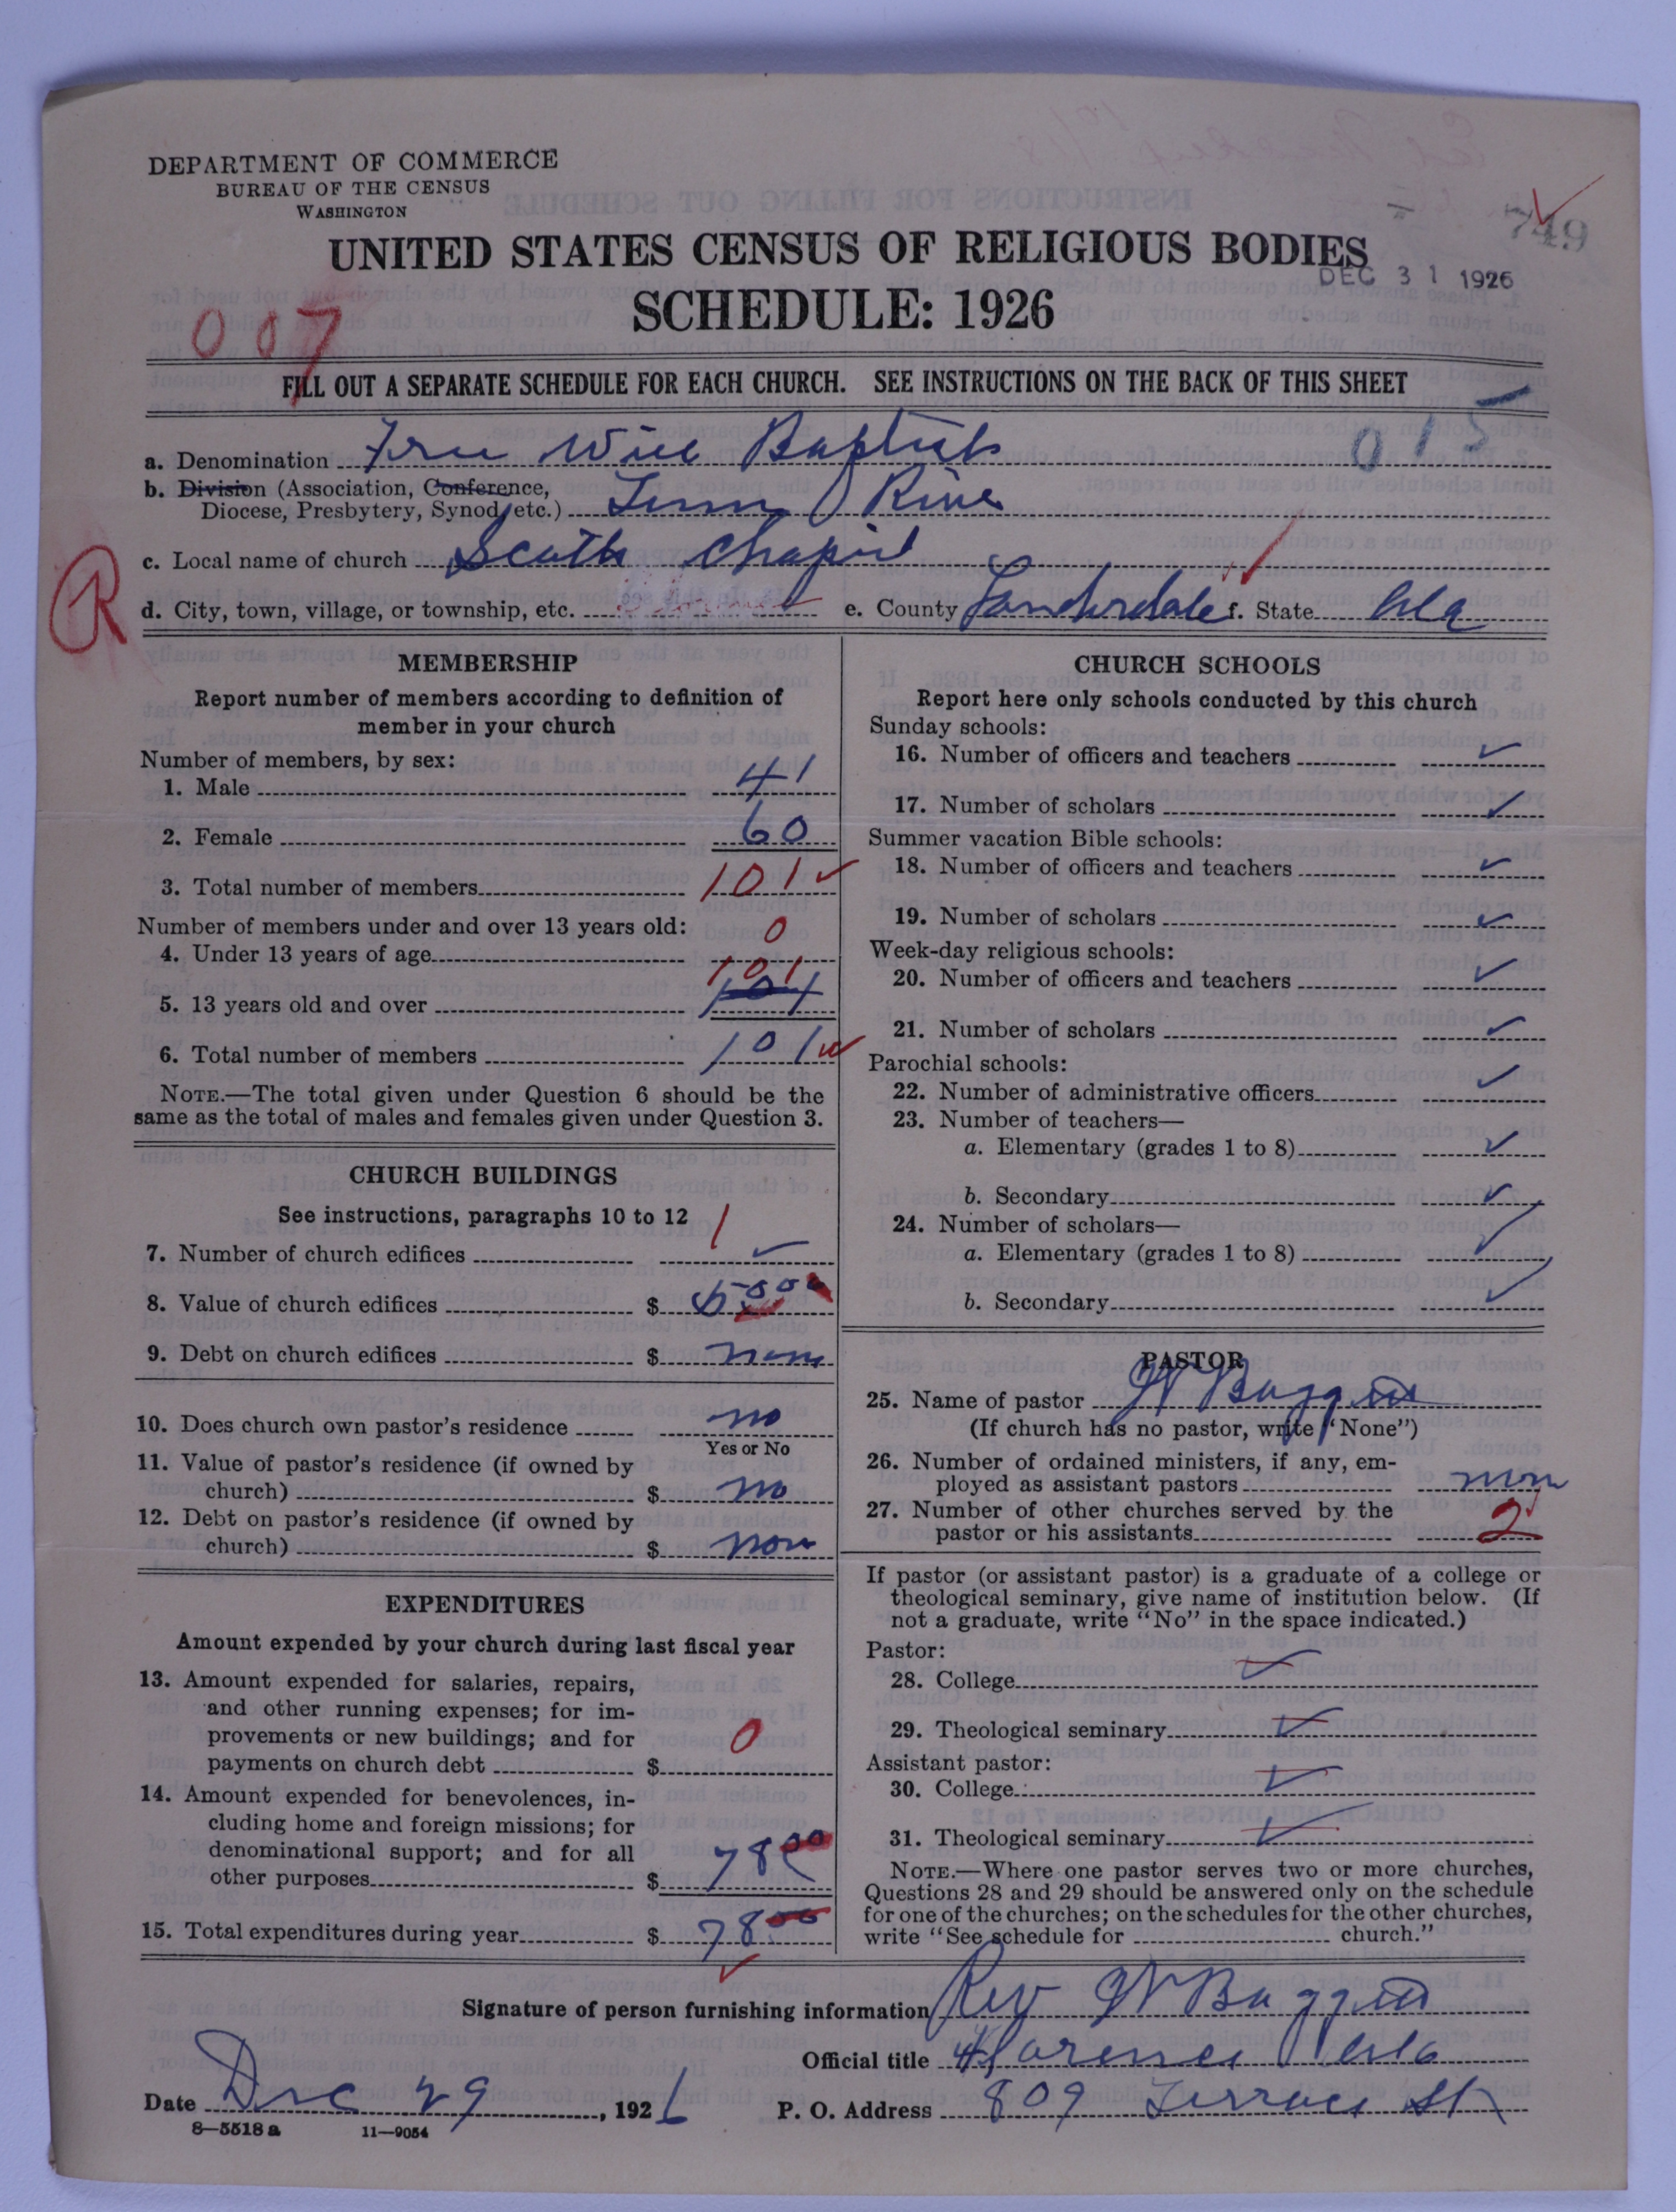 DEPARTMENT OF COMMERCE
BUREAU OF THE CENSUS
WASHINGTON
749
UNITED STATES CENSUS OF RELIGIOUS BODIES
DEC 31 1926
SCHEDULE: 1926
007
FILL OUT A SEPARATE SCHEDULE FOR EACH CHURCH. SEE INSTRUCTIONS ON THE BACK OF THIS SHEET
015
a. Denomination Free Will Baptist
b. Division (Association, Conference,
Diocese, Presbytery, Synod, etc.) Tenn River
c. Local name of church Scoth Chapil
R
d. City, town, village, or township, etc. e. County Landerdale f. State Ala
MEMBERSHIP
Report number of members according to definition of
member in your church
Number of members, by sex:
1. Male 41
2. Female 60
3. Total number of members 101
Number of members under and over 13 years old:
4. Under 13 years of age 0
5. 13 years old and over 101
6. Total number of members 101
NOTE.—The total given under Question 6 should be the
same as the total of males and females given under Question 3.
CHURCH BUILDINGS
See instructions, paragraphs 10 to 12
7. Number of church edifices 1
8. Value of church edifices $
9. Debt on church edifices $ none
10. Does church own pastor's residence no
Yes or No
11. Value of pastor's residence (if owned by
church) $ no
12. Debt on pastor's residence (if owned by
church) $ non
EXPENDITURES
Amount expended by your church during last fiscal year
13. Amount expended for salaries, repairs,
and other running expenses; for im-
provements or new buildings; and for
payments on church debt $ 0
14. Amount expended for benevolences, in-
cluding home and foreign missions; for
denominational support; and for all
other purposes $ 78 00
15. Total expenditures during year $ 78 00
CHURCH SCHOOLS
Report here only schools conducted by this church
Sunday schools:
16. Number of officers and teachers
17. Number of scholars
Summer vacation Bible schools:
18. Number of officers and teachers
19. Number of scholars
Week-day religious schools:
20. Number of officers and teachers
21. Number of scholars
Parochial schools:
22. Number of administrative officers
23. Number of teachers—
a. Elementary (grades 1 to 8)
b. Secondary
24. Number of scholars—
a. Elementary (grades 1 to 8)
b. Secondary
PASTOR
25. Name of pastor
(If church has no pastor, write "None")
26. Number of ordained ministers, if any, em-
ployed as assistant pastors non
27. Number of other churches served by the
pastor or his assistants 2
If pastor (or assistant pastor) is a graduate of a college or
theological seminary, give name of institution below. (If
not a graduate, write "No" in the space indicated.)
Pastor:
28. College
29. Theological seminary
Assistant pastor:
30. College
31. Theological seminary
NOTE.—Where one pastor serves two or more churches,
Questions 28 and 29 should be answered only on the schedule
for one of the churches; on the schedules for the other churches,
write "See schedule for church."
Signature of person furnishing information Rev
Official title Florence Ala
Date Dec 29, 1926 P. O. Address 809 Terrace St
8—5518 a 11—9054